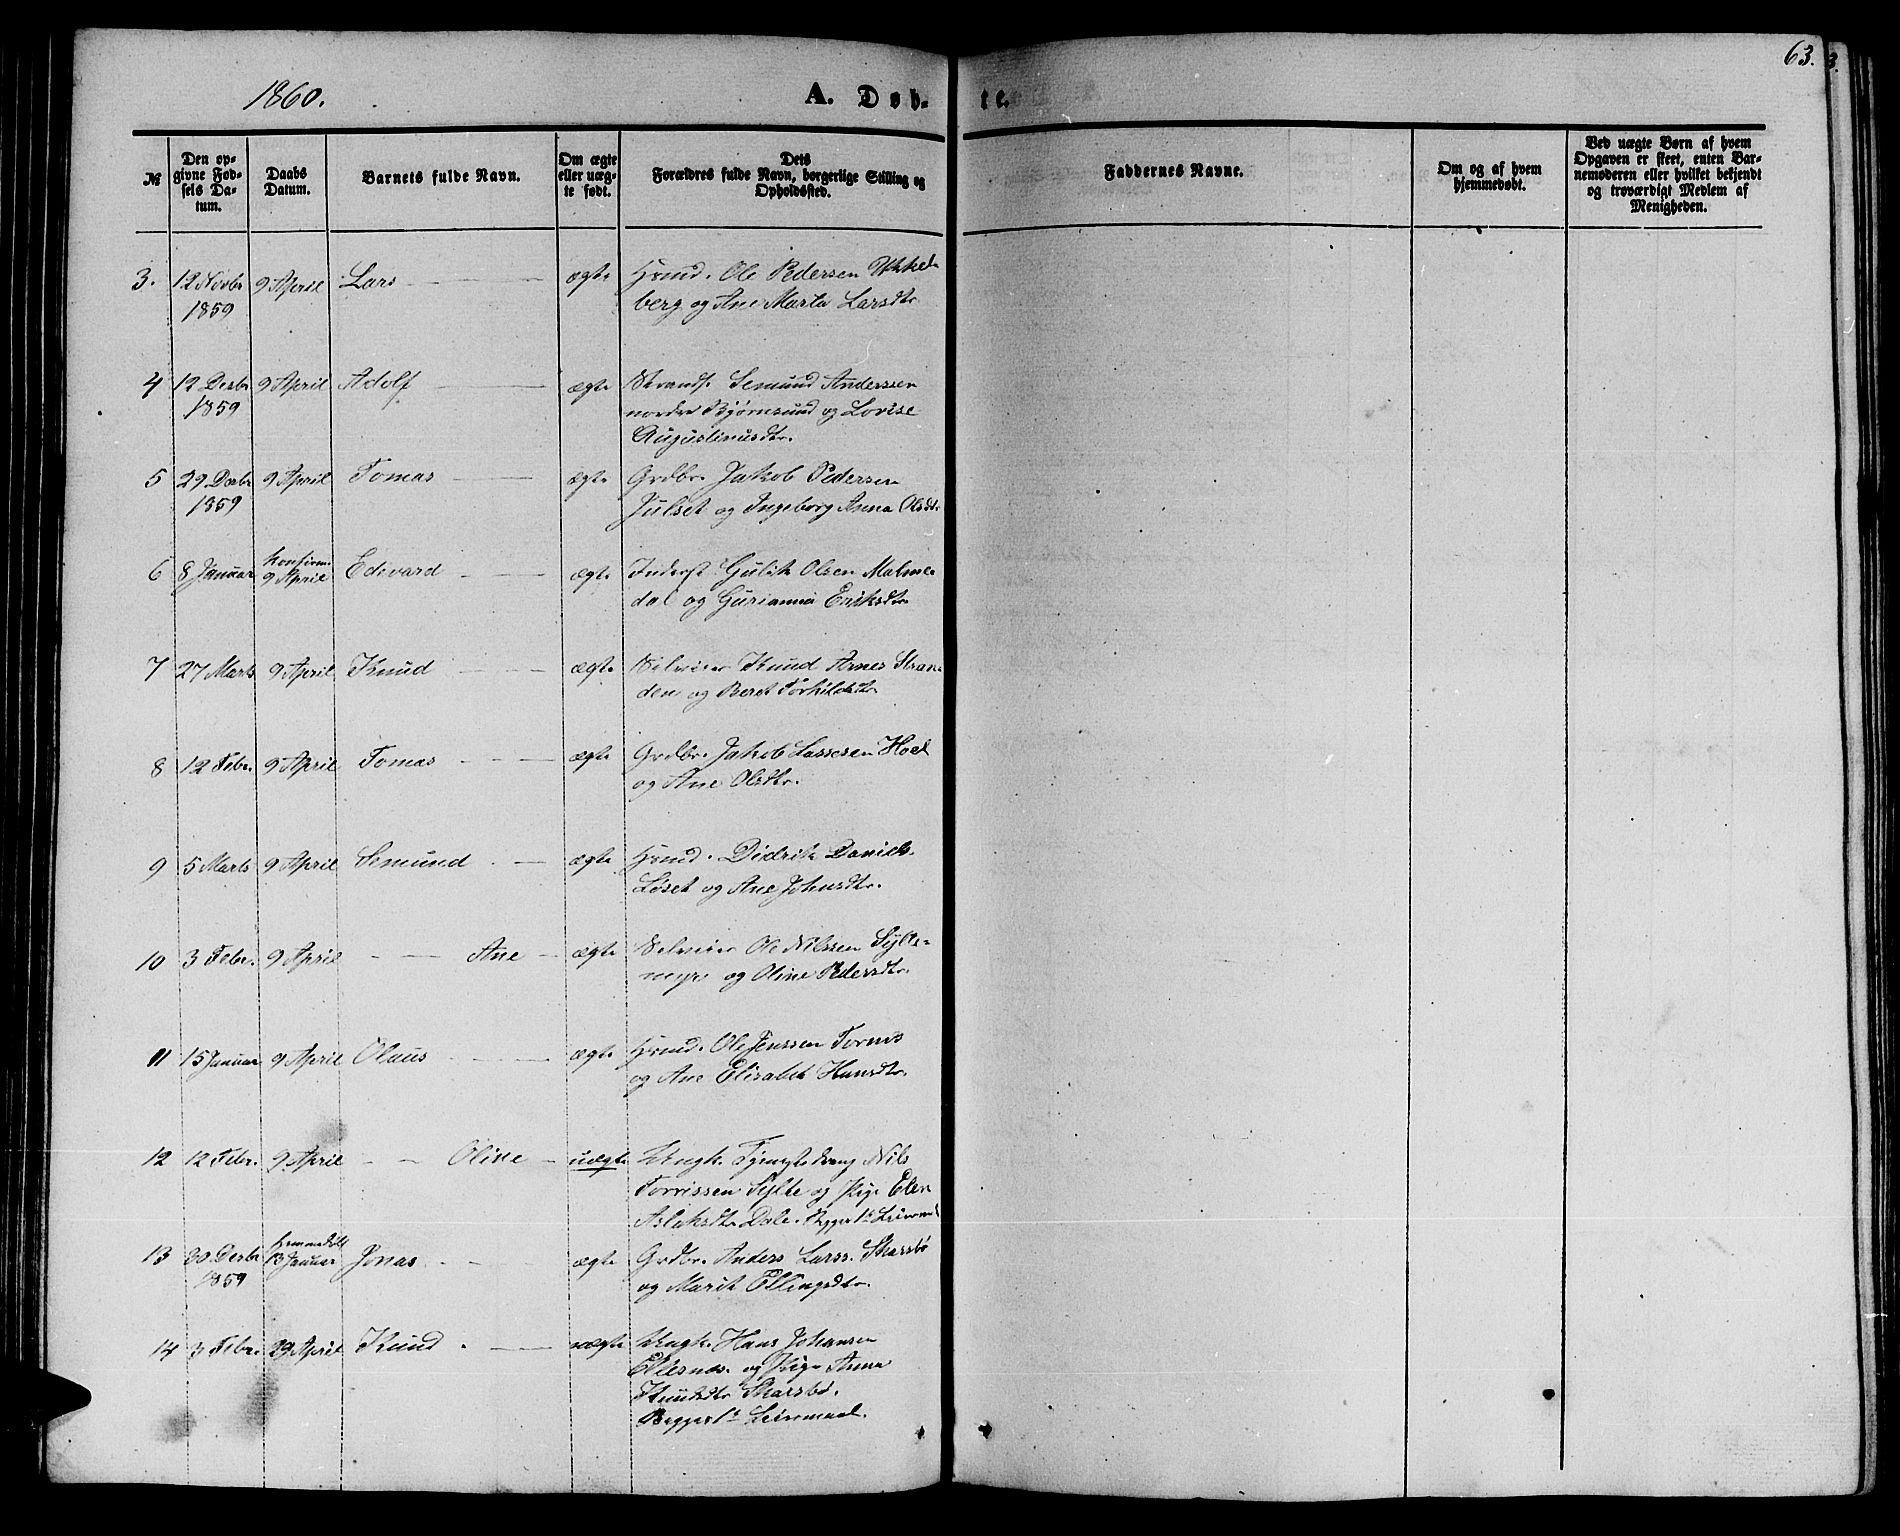 1860.
A. Døb-
te.
63.
3.
№
Den op-
givne Fød-
sels Da-
tum.
Daabs
Datum.
Barnets fulde Navn.
Om ægte
eller uæg-
te født.
Dets
Forældres fulde Navn, borgerlige Stilling og
Opholdssted.
Faddernes Navne.
Om og af hvem
hjemmedøbt.
Ved uægte Børn af hvem
Opgaven er skeet, enten Bar-
nemoderen eller hvilket bekjendt
og troværdigt Medlem af
Menigheden.
3. 12 Novbr 9 April Lars ægte Hsmd. Ole Pedersen
1859 berg og Ane Marta Larsdtr
4 12 Desbr 9 April Adolf ægte Strands. Semund Anderssen
1859 nordre Bjørnsund og Lovise
Augustinusdtr.
5 29 Desbr 9 April Tomas ægte Grdbr. Jakob Pedersen
1859 Julset og Ingeborg Anna Olsdtr
6 8 Januar Konfirm. 9 April Edvard ægte Inderst Gulik Olsen Malme-
dal og Gurianna Eriksdtr
7 27 Marts 9 April Knud ægte Selveier Knud Arnes Stran-
den og Beret Torkildsdtr
8 12 Febr. 9 April Tomas ægte Grdbr. Jakob Lassesen Hoel
og Ane Olsdtr.
9 5 Marts 9 April Semund ægte Hsmd. Didrik Daniels.
Løset og Ane Johnsdtr.
10 3 Febr. 9 April Ane ægte Selveier Ole Nilssen Sylte-
myr og Oline Pedersdtr.
11 15 Januar 9 April Olaus ægte Hsmd. Ole Jenssen Tornes
og Ane Elisabet Hansdtr.
12 12 Febr. 9 April Oline uægte Ungk. Nils
Torrissen Sylte og Pige Elen
Aslaksdtr Dale. Begges 1ste Leierm.
13 30 Desbr Hjemmedøbt 13 Januar Jonas ægte Grdbr. Anders Larss. Skarsbø
1859 og Marit Ellingsdtr.
14 3 Febr. 29 April Knud uægte Ungk. Hans Johansen
Elisnes og Pige Anna
Knudsdtr Skarsbø.
Begges 1ste Leiermaal.